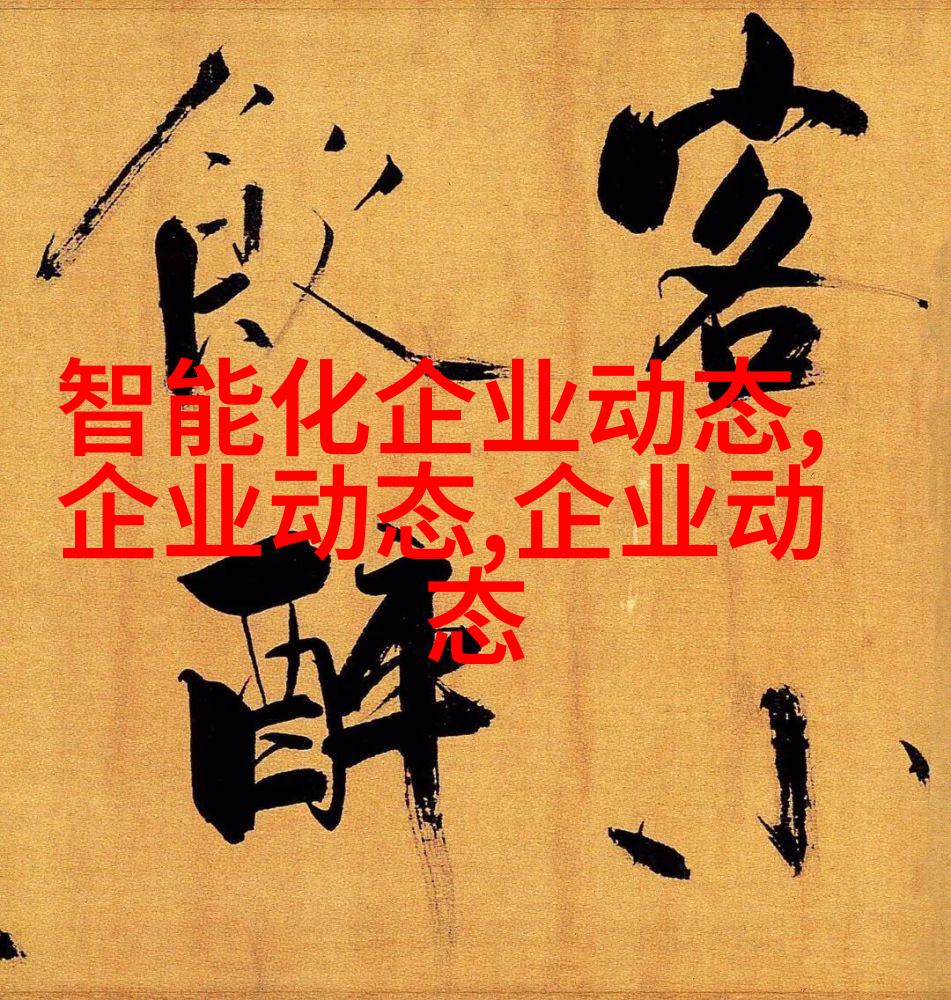 智能化企业动态,
企业动态,企业动
态
客小
飲醉